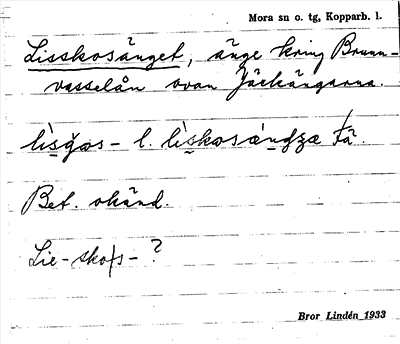 Mora sn o. tg, Kopparb. l.
Lisskosänget, änge kring Brunn-
vasselån ovan Jäckängarna.
lisgos- l. liskosængæ fä.
Bet. okänd.
Lie-skots- ?
Bror Lindén 1933